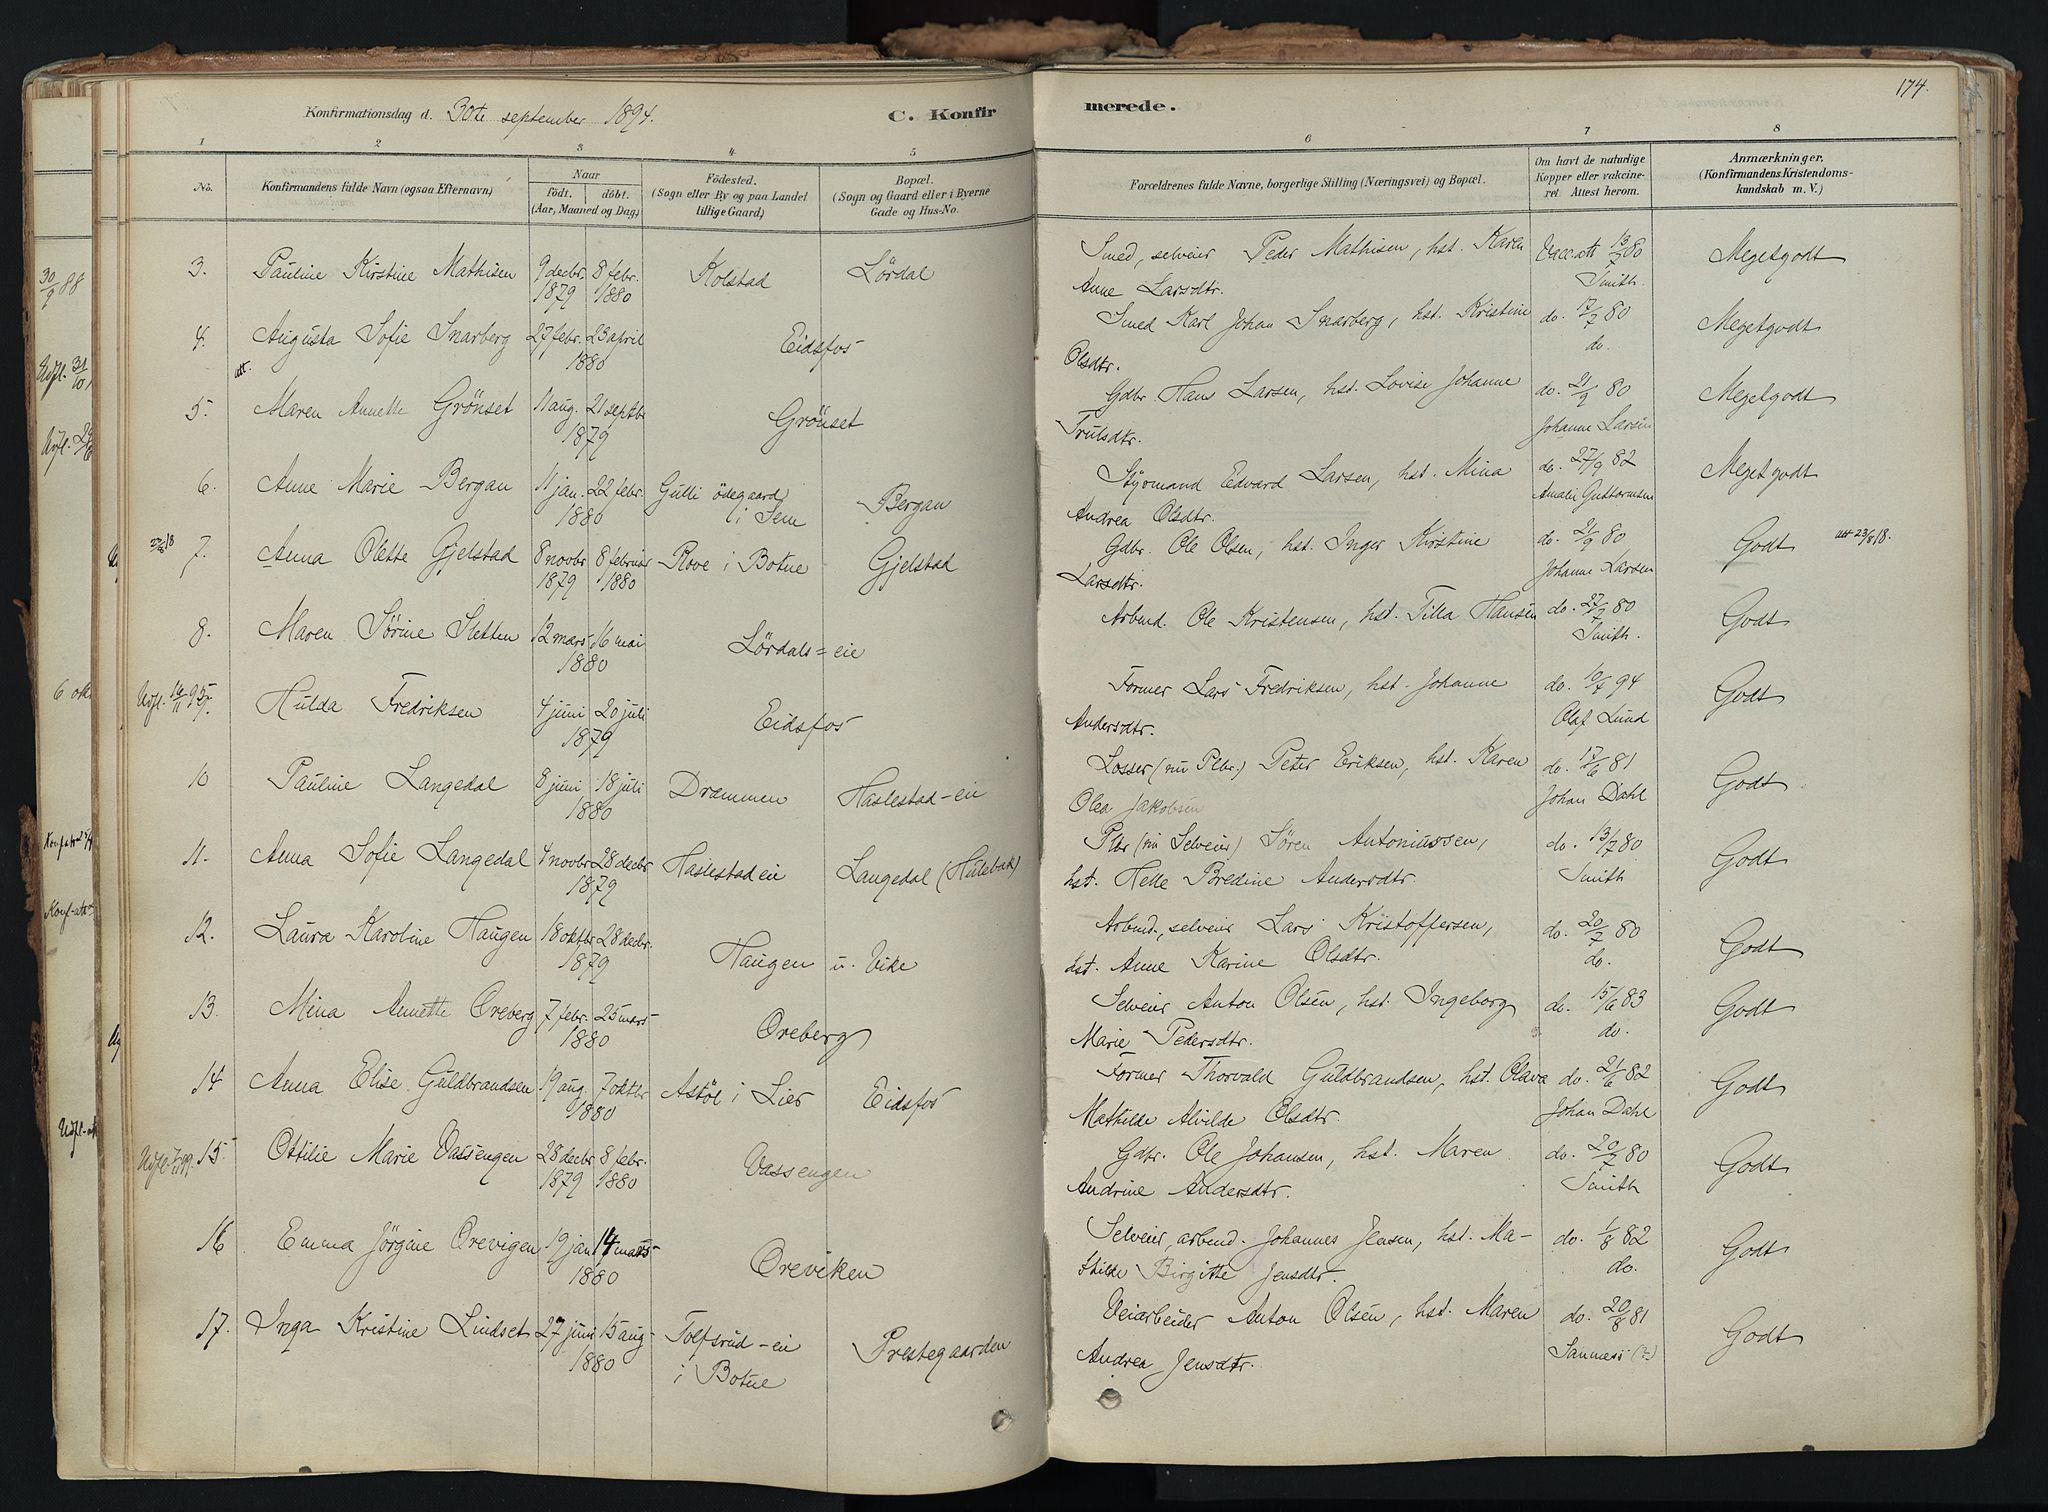 174.
Konfirmationsdag d. 30te september 1894.
C. Konfirmerede.
1 2 3 4 5 6 7 8
No.
Konfirmandens fulde Navn (ogsaa Efternavn)
Naar
født. døbt.
(Aar, Maaned og Dag)
Fødested.
(Sogn eller By og paa Landet
tillige Gaard)
Bopæl.
(Sogn og Gaard eller i Byerne
Gade og Hus-No.
Forældrenes fulde Navne, borgerlige Stilling (Næringsvei) og Bopæl.
Om havt de naturlige
Kopper eller vakcine-
ret. Attest herom.
Anmærkninger.
(Konfirmandens Kristendoms-
kundskab m. V.)
3. Pauline Kirstine Mathisen 9 decbr. 8 febr. Kolstad Lördal Smed, selveier Peder Mathisen, hst. Karen Vacc. att 13/7 80 Megetgodt
1879 1880 Anne Larsdtr. Smith.
4. Augusta Sofie Snarberg 27 febr. 23 april Eidsfos Smed Karl Johan Snarberg, hst. Kristine do. 17/7 80 Megetgodt
1880 Olsdtr. do.
att.
5. Maren Annette Grönset 11 aug. 21 septbr Grönset Gdbr. Hans Larsen, hst. Lovise Johanne do. 21/9 80 Megetgodt
1879 Trulsdtr. Johanne Larsen
6. Anne Marie Bergan 11 jan. 22 febr. Gulli ödegaard Bergan Styrmand Edvard Larsen, hst. Mina do. 27/9 82 Megetgodt
1880 i Sem Andrea Olsdtr. Amalie Guttormsen
7. Anna Olette Gjelstad 8 novbr 8 februar Rove i Botne Gjelstad Gdbr. Ole Olsen, hst. Inger Kirstine do. 21/9 80 Godt att 23/8 18.
1879 1880 Larsdtr. Johanne Larsen
8. Maren Sörine Sletten 12 mars 16 mai Lördals=eie Arbmd. Ole Kristensen, hst. Tilla Hansen do. 27/7 80 Godt
1880 Smith.
Udfl. 16/11 95 9. Hulda Fredriksen 4 juni 20 juli Eidsfos Former Lars Fredriksen, hst. Johanne do. 10/7 94 Godt
1879 Andersdtr. Olaf Lund
10 Pauline Langedal 8 juni 18 juli Drammen Haslestad-eie Losser (nu Plbr.) Peter Eriksen, hst. Karen do. 17/6 81 Godt
1880 Olea Jakobsen Johan Dahl
11. Anna Sofie Langedal 4 novbr 28 decbr Haslestad eie Langedal (Hulebak) Plbr (nu Selveier) Sören Antoniussen, do. 13/7 80 Godt
1879 hst. Helle Bredine Andersdtr. Smith
12. Laura Karoline Haugen 18 oktbr 28 decbr. Haugen u. Vike Arbmd., selveier Lars Kristoffersen, do. 20/7 80 Godt
1879 hst. Anne Karine Olsdtr. do.
13. Mina Annette Oreberg 7 febr. 25 mars Oreberg Selveier Anton Olsen, hst. Ingeborg do. 15/6 83 Godt
1880 Marie Pedersdtr. do.
14 Anna Elise Guldbrandsen 19 aug. 7 oktbr Astöl i Lier Eidsfos Former Thorvald Guldbrandsen, hst. Olava do. 21/6 82 Godt
1880 Mathilde Alvilde Olsdtr. Johan Dahl
15 Ottilie Marie Vassengen 28 decbr 8 febr. Vassengen Gdbr. Ole Johansen, hst. Maren do. 20/7 80 Godt
1879 1880 Andrine Andersdtr. Smith
16 Emma Jörgine Orevigen 19 jan 14 mars Oreviken Selveier, arbmd. Johannes Jensen, hst. Ma- do. 1/8 82 Godt
1880 thilde Birgitte Jensdtr. do.
17. Inga Kristine Lindset 27 juni 15 aug Tolfsrud-eie Prestegaarden Veiarbeider Anton Olsen, hst. Maren do. 20/8 81 Godt
1880 i Botne Andrea Jensdtr. Sannes (?)
30/9 88
Udfl. 31/10
6 okt